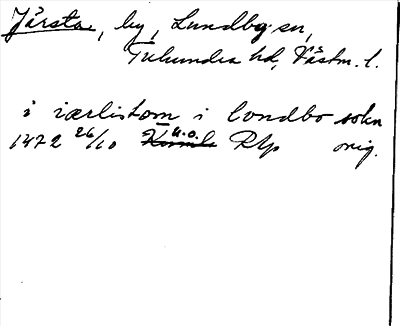 Järsta, by, Lundby sn,
Tuhundra hd, Västm. l.
i iærlistom i londbo sokn
1472 26/10 u.o. Rap orig.